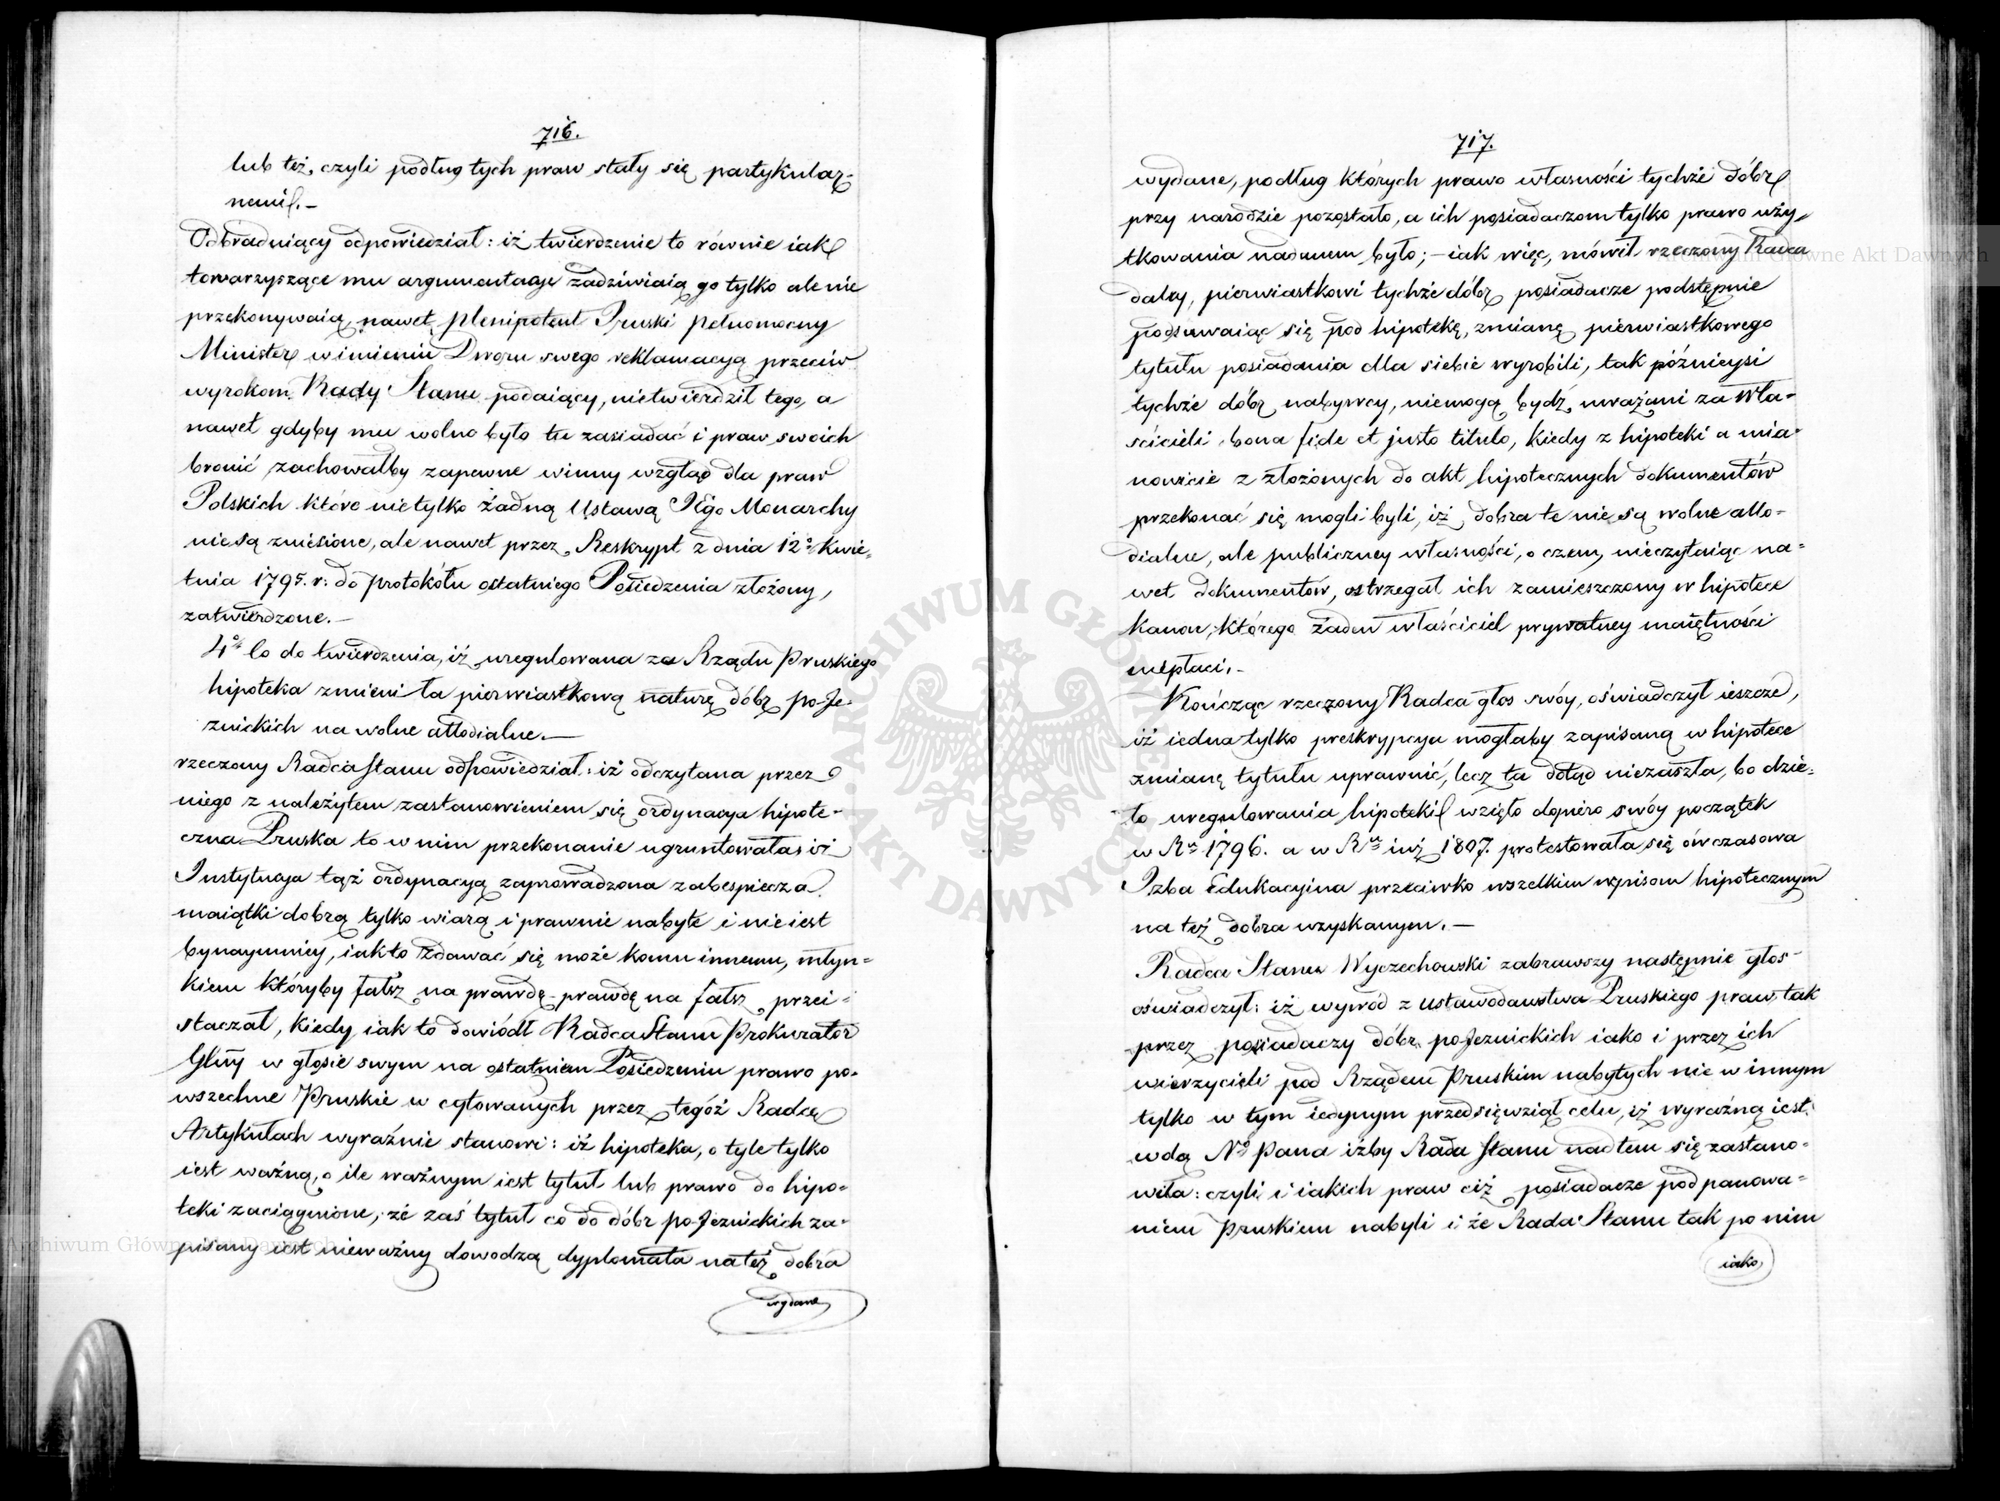 716.
lub też, czyli podług tych praw stały się partykular-
nemi.—
Odbradniący odpowiedział: iż twierdzenie to równie iak
towarzyszące mu argumentacye zadziwiaią go tylko ale nie
przekonywaią, nawet plenipotent Pruski Pełnomocny
Minister w imieniu Dworu swego reklamacyą przeciw
wyrokom Rady Stanu podaiący, nietwierdził tego, a
nawet gdyby mu wolno było tu zasiadać i praw swoich
bronić zachowałby zapewne winny wzgląd dla praw
Polskich które nietylko żadną Ustawą Jego Monarchy
nie są zniesione, ale nawet przez Reskrypt z dnia 12º Kwie-
tnia 1795. r: do protokółu ostatniego Posiedzenia złożony,
zatwierdzone.—
4º Co do twierdzenia, iż uregulowana za Rządu Pruskiego
hipoteka zmieniła pierwiastkową naturę dóbr po-Je-
zuickich na wolne allodialne.—
rzeczony Radca Stanu odpowiedział: iż odczytana przez
niego z należytem zastanowieniem się ordynacya hipote-
czna Pruska to w nim przekonanie ugruntowała: iż
Instytucya tąż ordynacyą zaprowadzona zabespiecza
maiątki dobrą tylko wiarą i prawnie nabyte i nie iest
bynaymniey, iak to zdawać się może komu innemu, młyn-
kiem któryby fałsz na prawdę, prawdę na fałsz przei-
staczał, kiedy iak to dowiódł Radca Stanu Prokurator
Głny w głosie swym na ostatniem Posiedzeniu prawo po-
wszechne Pruskie w cytowanych przez tegóż Radcę
Artykułach wyraźnie stanowi: iż hipoteka, o tyle tylko
iest ważną, o ile ważnym iest tytuł lub prawo do hipo-
teki zaciągnione; że zaś tytuł co do dóbr po-Jezuickich za-
pisany iest nieważny dowodzą dyplomata na też dobra
wydane
717.
wydane, podług których prawo własności tychże dóbr
przy narodzie pozostało, a ich posiadaczom tylko prawo uży-
tkowania nadanem było; — iak więc, mówił rzeczony Radca
daley, pierwiastkowi tychże dóbr posiadacze podstępnie
podsuwaiąc się pod hipotekę, zmianę pierwiastkowego
tytułu posiadania dla siebie wyrobili, tak póżnieysi
tychże dóbr nabywcy, niemogą bydź uważani za wła-
ścicieli bona fide et justo titulo, kiedy z hipoteki a mia-
nowicie z złożonych do akt hipotecznych dokumentów
przekonać się mogli byli, iż dobra te nie są wolne allo-
dialne, ale publiczney własności, o czem, nieczytaiąc na-
wet dokumentów, ostrzegał ich zamieszczony w hipotece
Kanon, którego żaden właściciel prywatney maiętności
niepłaci.—
Kończąc rzeczony Radca głos swóy, oświadczył ieszcze,
iż iedna tylko preskrypcya mogłaby zapisaną w hipotece
zmianę tytułu uprawnić, lecz ta dotąd niezaszła, bo dzie-
ło uregulowania hipoteki wzięło dopiero swóy początek
w Ru 1796. a w Ru iuż 1807. protestowała się ówczasowa
Izba Edukacyina przeciwko wszelkim wpisom hipotecznym
na też dobra uzyskanym.—
Radca Stanu Wyczechowski zabrawszy następnie głos
oświadczył: iż wywód z ustawodawstwa Pruskiego praw, tak
przez posiadaczy dóbr po-Jezuickich iako i przez ich
wierzycieli pod Rządem Pruskim nabytych nie w innym
tylko w tym iedynym przedsięwziął celu, iż wyraźną iest
wolą No Pana iżby Rada Stanu nad tem się zastano-
wiła: czyli i iakich praw ciż posiadacze pod panowa-
niem Pruskiem nabyli i że Rada Stanu tak po nim
iako
ARCHIWUM GŁÓWNE AKT DAWNYCH
Archiwum Główne Akt Dawnych
Archiwum Główne Akt Dawnych